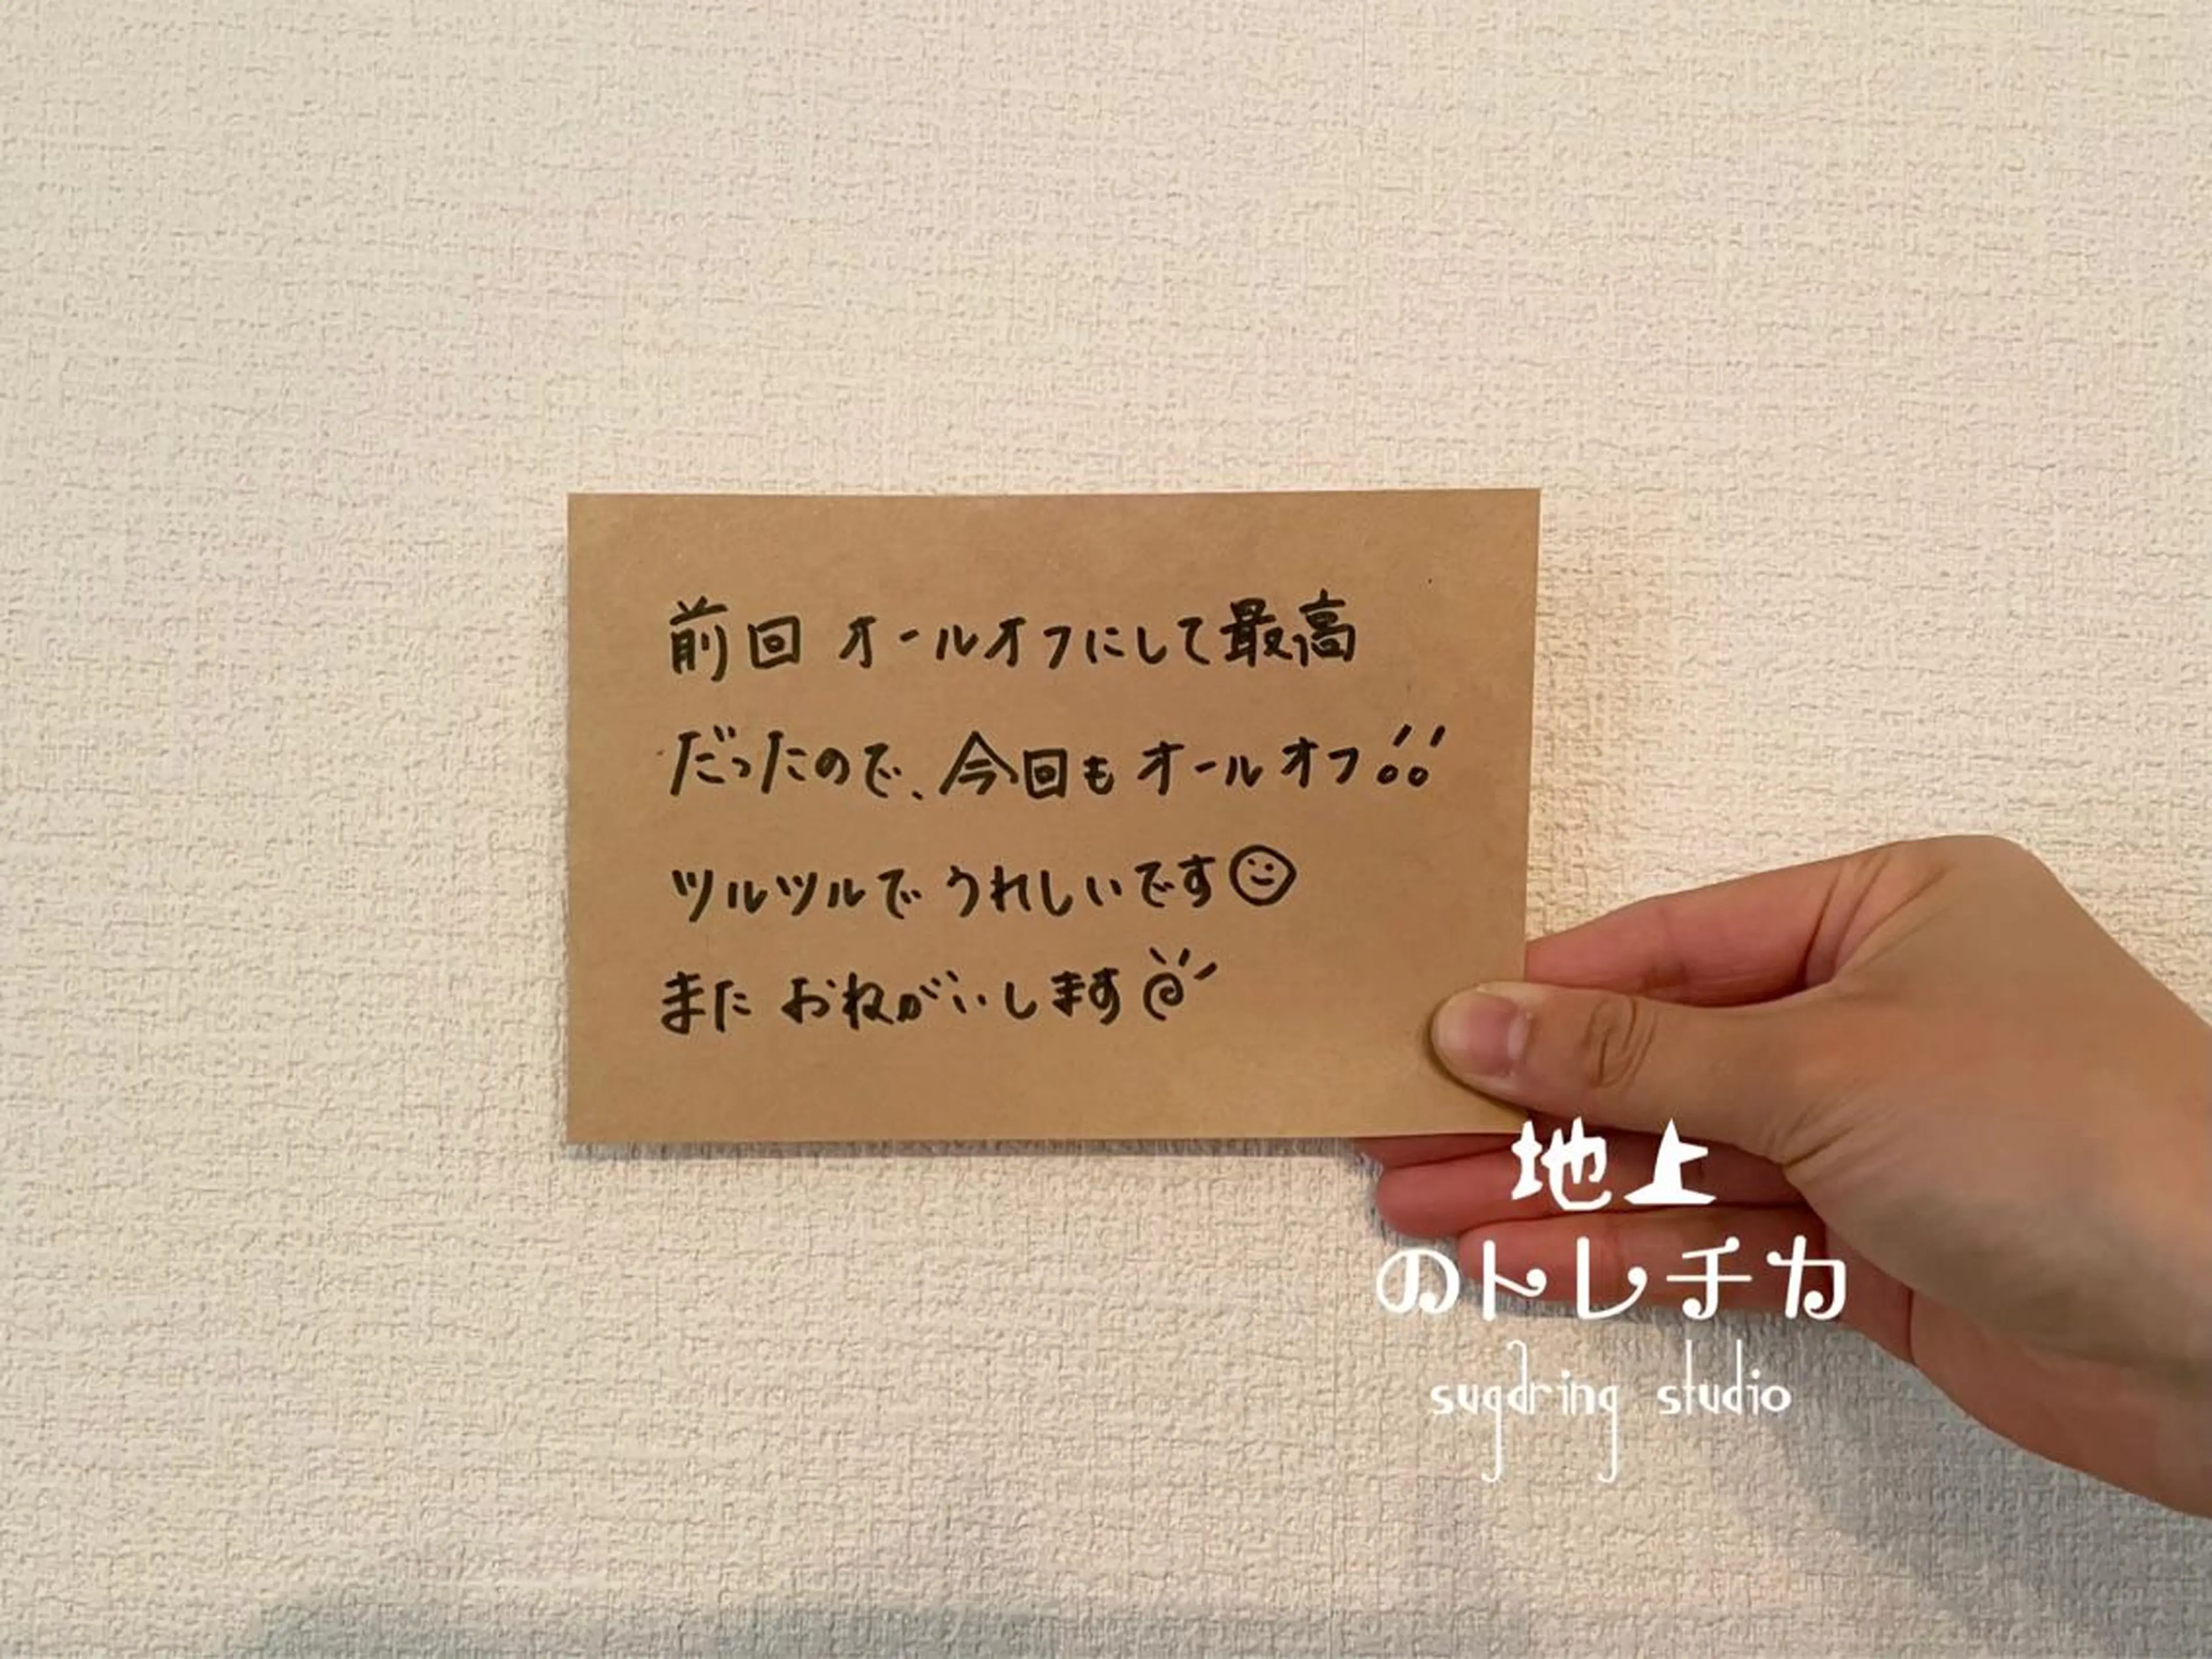 前回 オールオフにして最高
だったので、今回も オールオフ!!
ツルツルで うれしいです
また おねがいします
地上
のトレチカ
sugaring studio